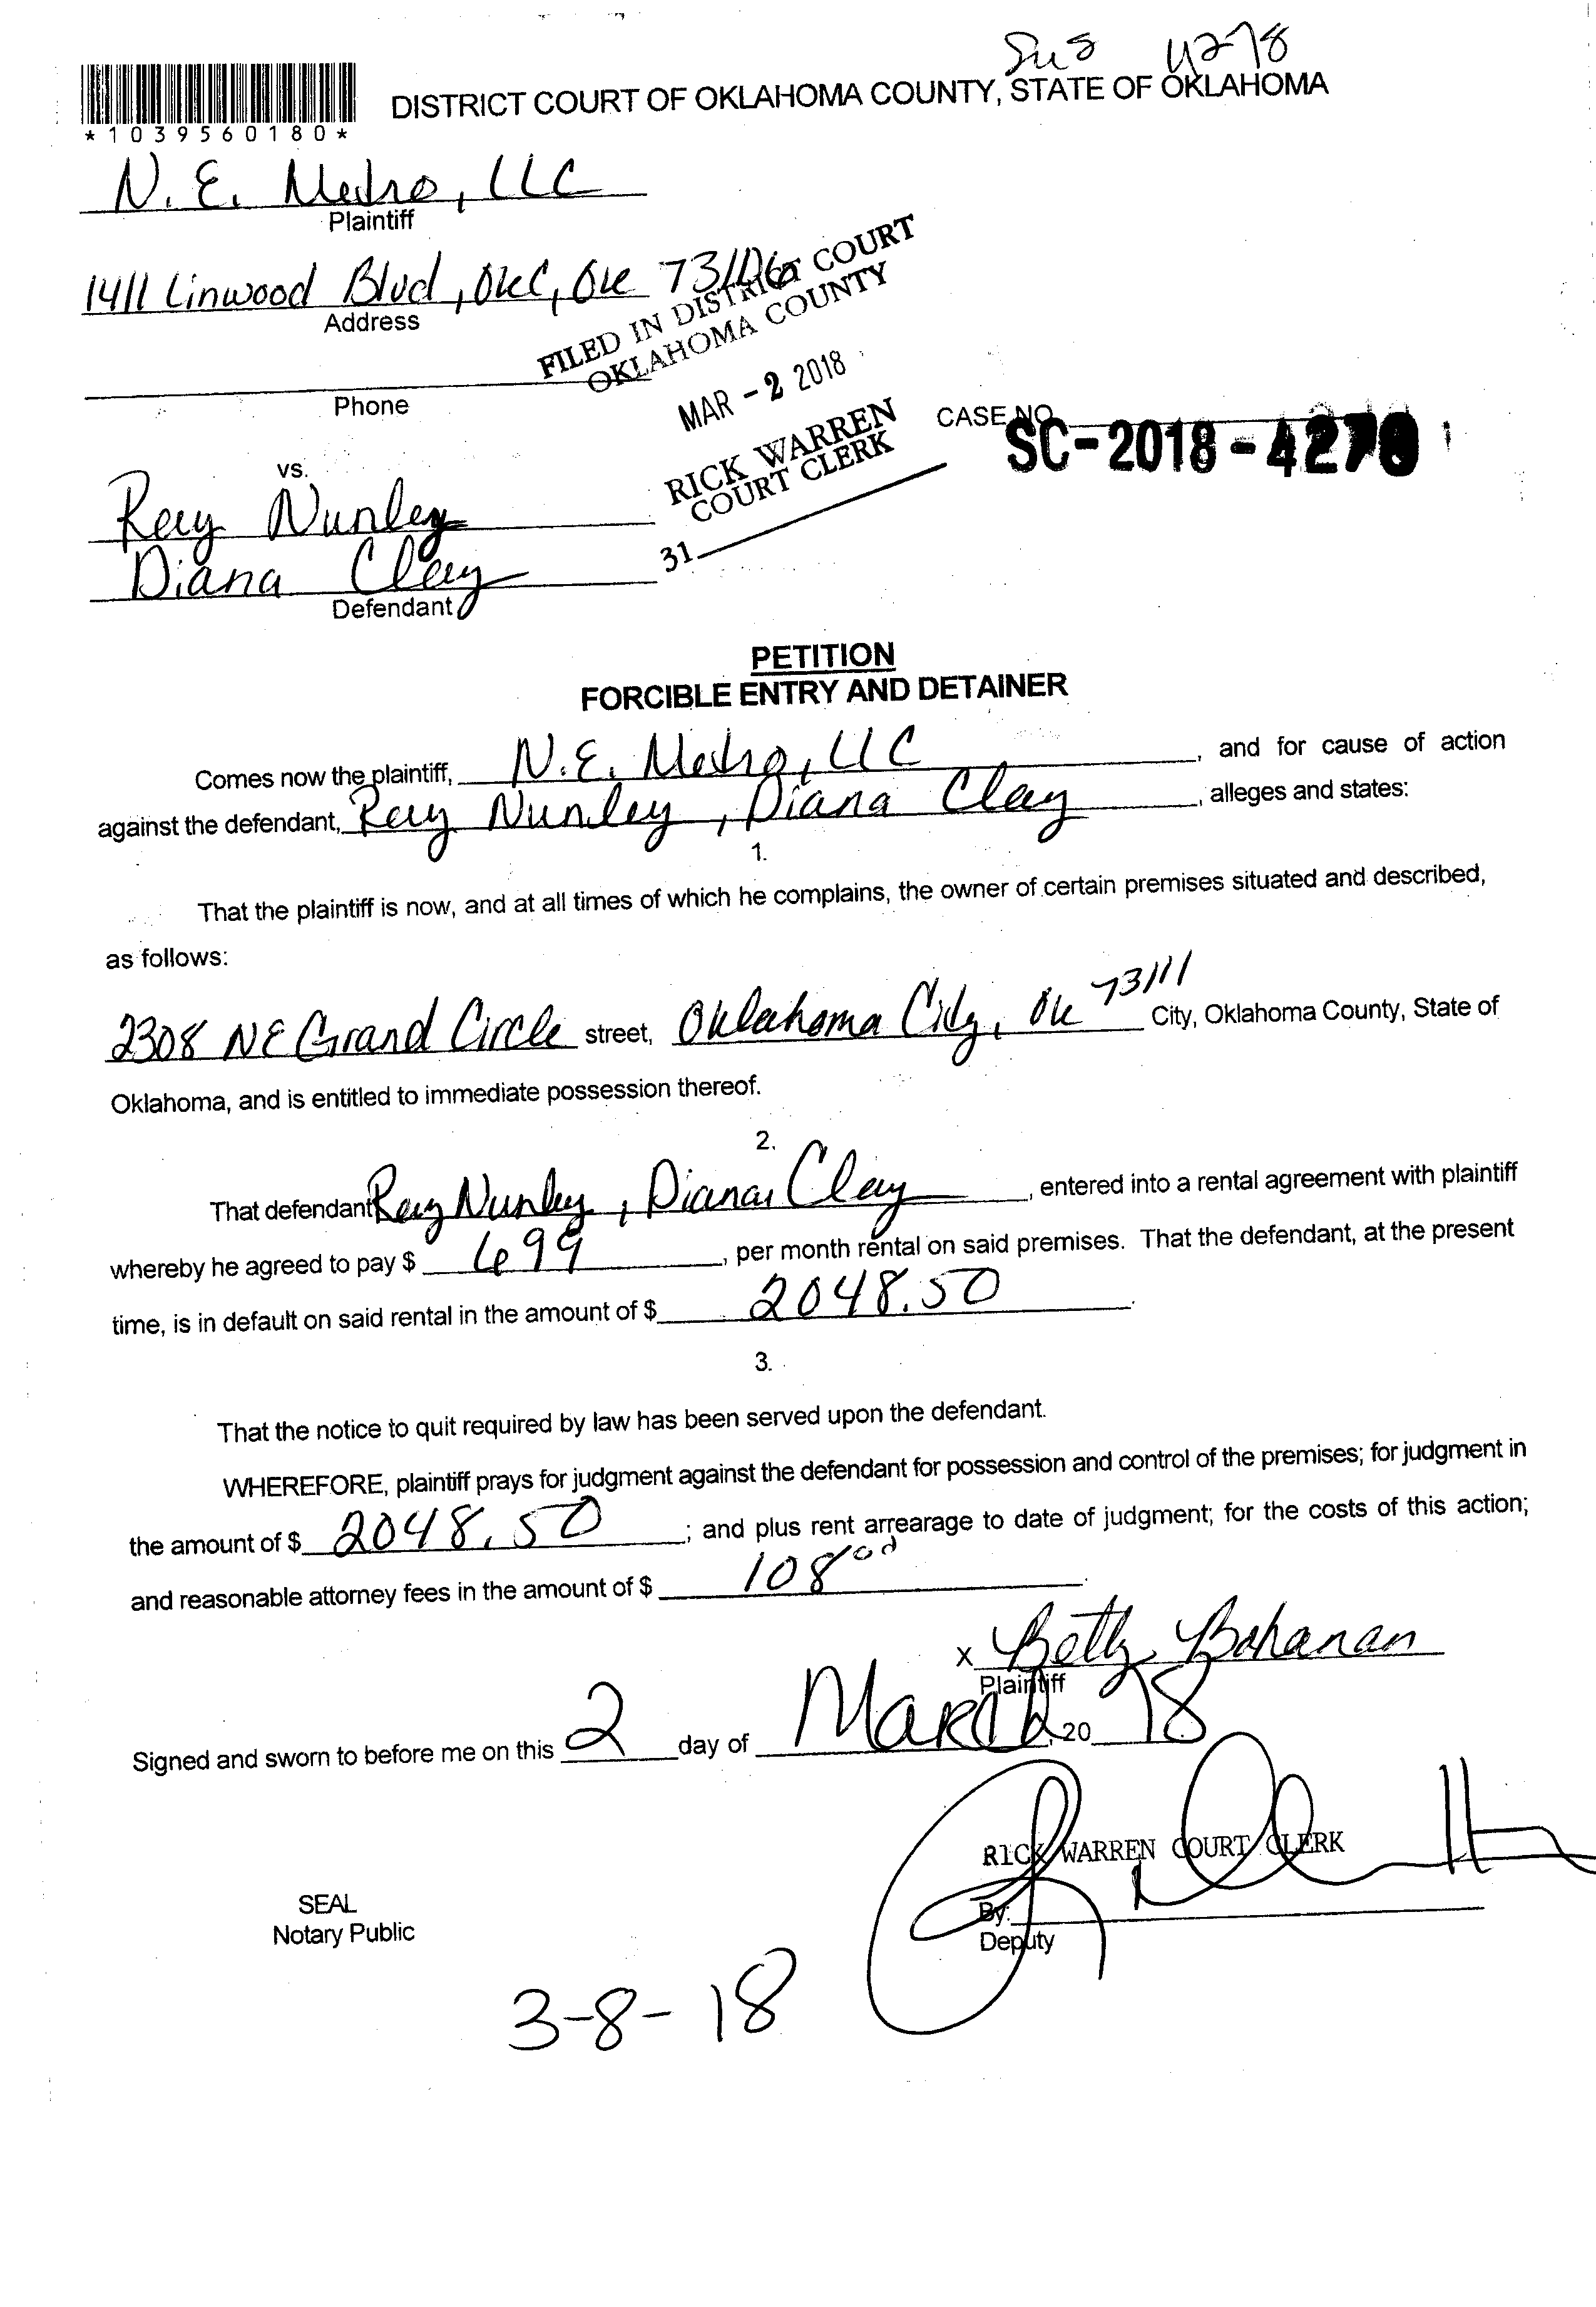 4278
DISTRICT COURT OF OKLAHOMA COUNTY, STATE OF OKLAHOMA
*1039560180*
N. E. Metro, LLC
Plaintiff
1411 Linwood Blvd, OKC, OK 73106
Address
FILED IN DISTRICT COURT
OKLAHOMA COUNTY
Phone
MAR - 2 2018
RICK WARREN
COURT CLERK
31
CASE NO.
SC-2018-4278
vs.
Ray Nunley
Diana Clay
Defendant
PETITION
FORCIBLE ENTRY AND DETAINER
Comes now the plaintiff, N.E. Metro, LLC, and for cause of action
against the defendant, Ray Nunley, Diana Clay, alleges and states:
1.
That the plaintiff is now, and at all times of which he complains, the owner of certain premises situated and described,
as follows:
2308 NE Grand Circle street, Oklahoma City, OK 73111 City, Oklahoma County, State of
Oklahoma, and is entitled to immediate possession thereof.
2.
That defendant Ray Nunley, Diana Clay, entered into a rental agreement with plaintiff
whereby he agreed to pay $ 699, per month rental on said premises. That the defendant, at the present
time, is in default on said rental in the amount of $ 2048.50.
3.
That the notice to quit required by law has been served upon the defendant.
WHEREFORE, plaintiff prays for judgment against the defendant for possession and control of the premises; for judgment in
the amount of $ 2048.50; and plus rent arrearage to date of judgment; for the costs of this action;
and reasonable attorney fees in the amount of $ 108 00.
x Betty Bohanan
Plaintiff
Signed and sworn to before me on this 2 day of March, 20 18
RICK WARREN COURT CLERK
SEAL
Notary Public
By:
Deputy
3-8-18